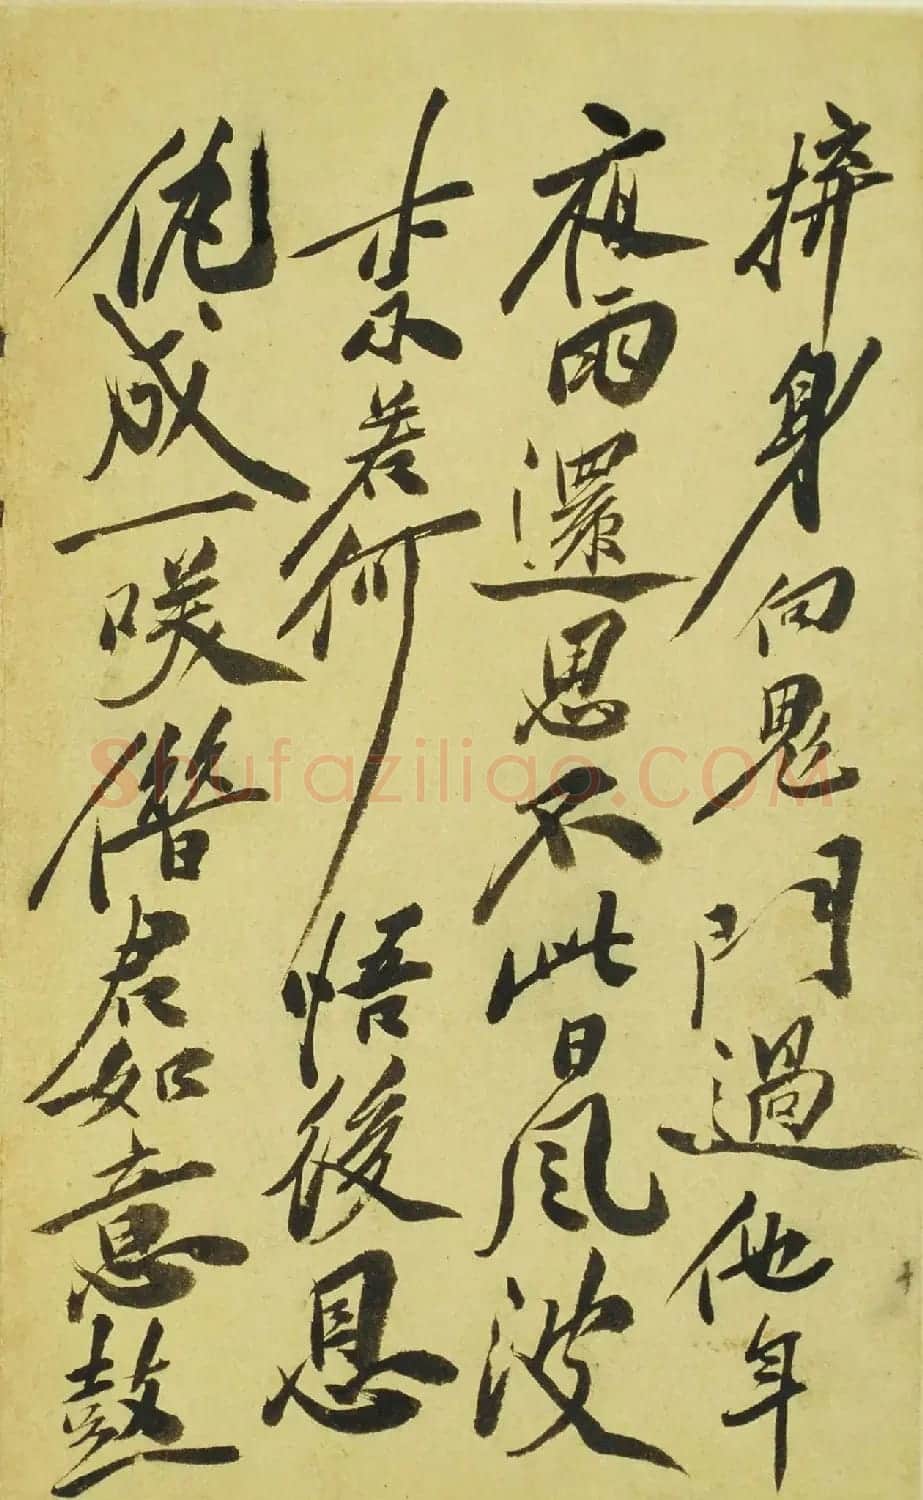 身向鬼門過他年
夜雨還思不此日風波
柰若何悟後恩
仇成一咲僭君如意鼓
Shufaziliao.COM